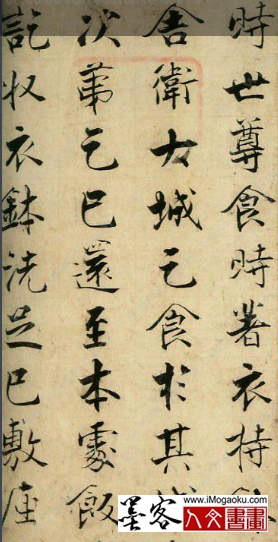 時世尊食時著衣持
舍衛大城乞食於其城
次第乞已還至本處飯
訖收衣鉢洗足已敷座
www.iMogaoku.com
墨客 人文書畫